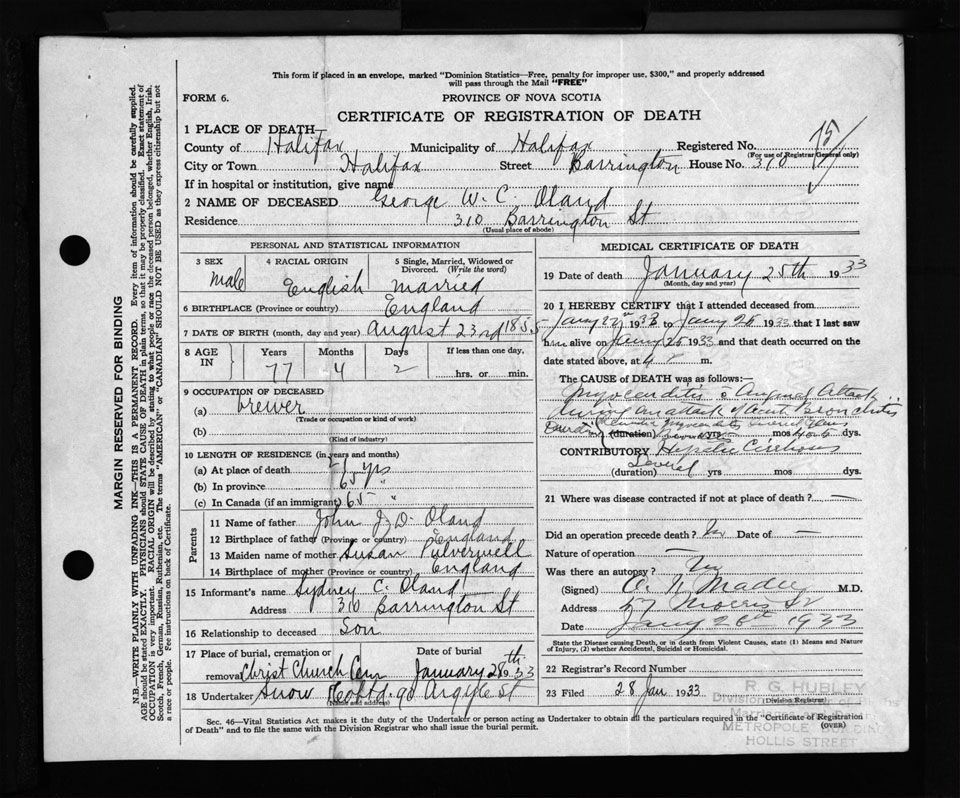 This form if placed in an envelope, marked "Dominion Statistics—Free, penalty for improper use, $300," and properly addressed
will pass through the Mail "FREE"
FORM 6.
PROVINCE OF NOVA SCOTIA
CERTIFICATE OF REGISTRATION OF DEATH
1 PLACE OF DEATH—
County of Halifax Municipality of Halifax Registered No. 75
(For use of Registrar General only)
City or Town Halifax Street Barrington House No. 310
If in hospital or institution, give name
2 NAME OF DECEASED George W. C. Oland
Residence 310 Barrington St
(Usual place of abode)
PERSONAL AND STATISTICAL INFORMATION
3 SEX 4 RACIAL ORIGIN 5 Single, Married, Widowed or
Divorced. (Write the word)
male English married
6 BIRTHPLACE (Province or country) England
7 DATE OF BIRTH (month, day and year) August 23rd 1855
8 AGE IN Years Months Days If less than one day,
77 4 2 hrs. or min.
9 OCCUPATION OF DECEASED
(a) brewer
(Trade or occupation or kind of work)
(b)
(Kind of industry)
10 LENGTH OF RESIDENCE (in years and months)
(a) At place of death yrs
(b) In province 65 "
(c) In Canada (if an immigrant) 65 "
Parents
11 Name of father John J. D. Oland
12 Birthplace of father (Province or country) England
13 Maiden name of mother Susan Pulverwell
14 Birthplace of mother (Province or country) England
15 Informant's name Sydney C. Oland
Address 310 Barrington St
16 Relationship to deceased Son
17 Place of burial, cremation or removal Christ Church Cem Date of burial January 28th 1933
18 Undertaker Snow 90 Argyle St
(Name and address)
MEDICAL CERTIFICATE OF DEATH
19 Date of death January 25th 1933
(Month, day and year)
20 I HEREBY CERTIFY that I attended deceased from
1933 to Jany 25 1933 that I last saw
him alive on Jany 25 1933 and that death occurred on the
date stated above, at 4 m.
The CAUSE OF DEATH was as follows:—
Myocarditis Anginal Attack
during an attack of acute Bronchitis
(duration) yrs mos 4 or 5 dys.
CONTRIBUTORY Hepatic Cirrhosis
(duration) Several yrs mos dys.
21 Where was disease contracted if not at place of death? —
Did an operation precede death? No Date of —
Nature of operation —
Was there an autopsy? No
(Signed) M.D.
Address 57 Morris St
Date Jany 26th 1933
State the Disease causing Death, or in death from Violent Causes, state (1) Means and Nature
of Injury, (2) whether Accidental, Suicidal or Homicidal.
22 Registrar's Record Number
23 Filed 28 Jan 1933
(Division Registrar)
R G HUBLEY
METROPOLE BUILDING
HOLLIS STREET
Sec. 46—Vital Statistics Act makes it the duty of the Undertaker or person acting as Undertaker to obtain all the particulars required in the "Certificate of Registration
of Death" and to file the same with the Division Registrar who shall issue the burial permit.
(OVER)
MARGIN RESERVED FOR BINDING
N.B.—WRITE PLAINLY WITH UNFADING INK—THIS IS A PERMANENT RECORD. Every item of information should be carefully supplied.
AGE should be stated EXACTLY. PHYSICIANS should STATE CAUSE OF DEATH in plain terms, so that it may be properly classified. Exact statement of
OCCUPATION is very important. RACIAL ORIGIN will be described by stating to what people or race the deceased person belonged, whether English, Irish,
Scotch, French, German, Russian, Ruthenian, etc. The terms "AMERICAN" or "CANADIAN" SHOULD NOT BE USED as they express citizenship but not
a race or people. See instructions on back of Certificate.